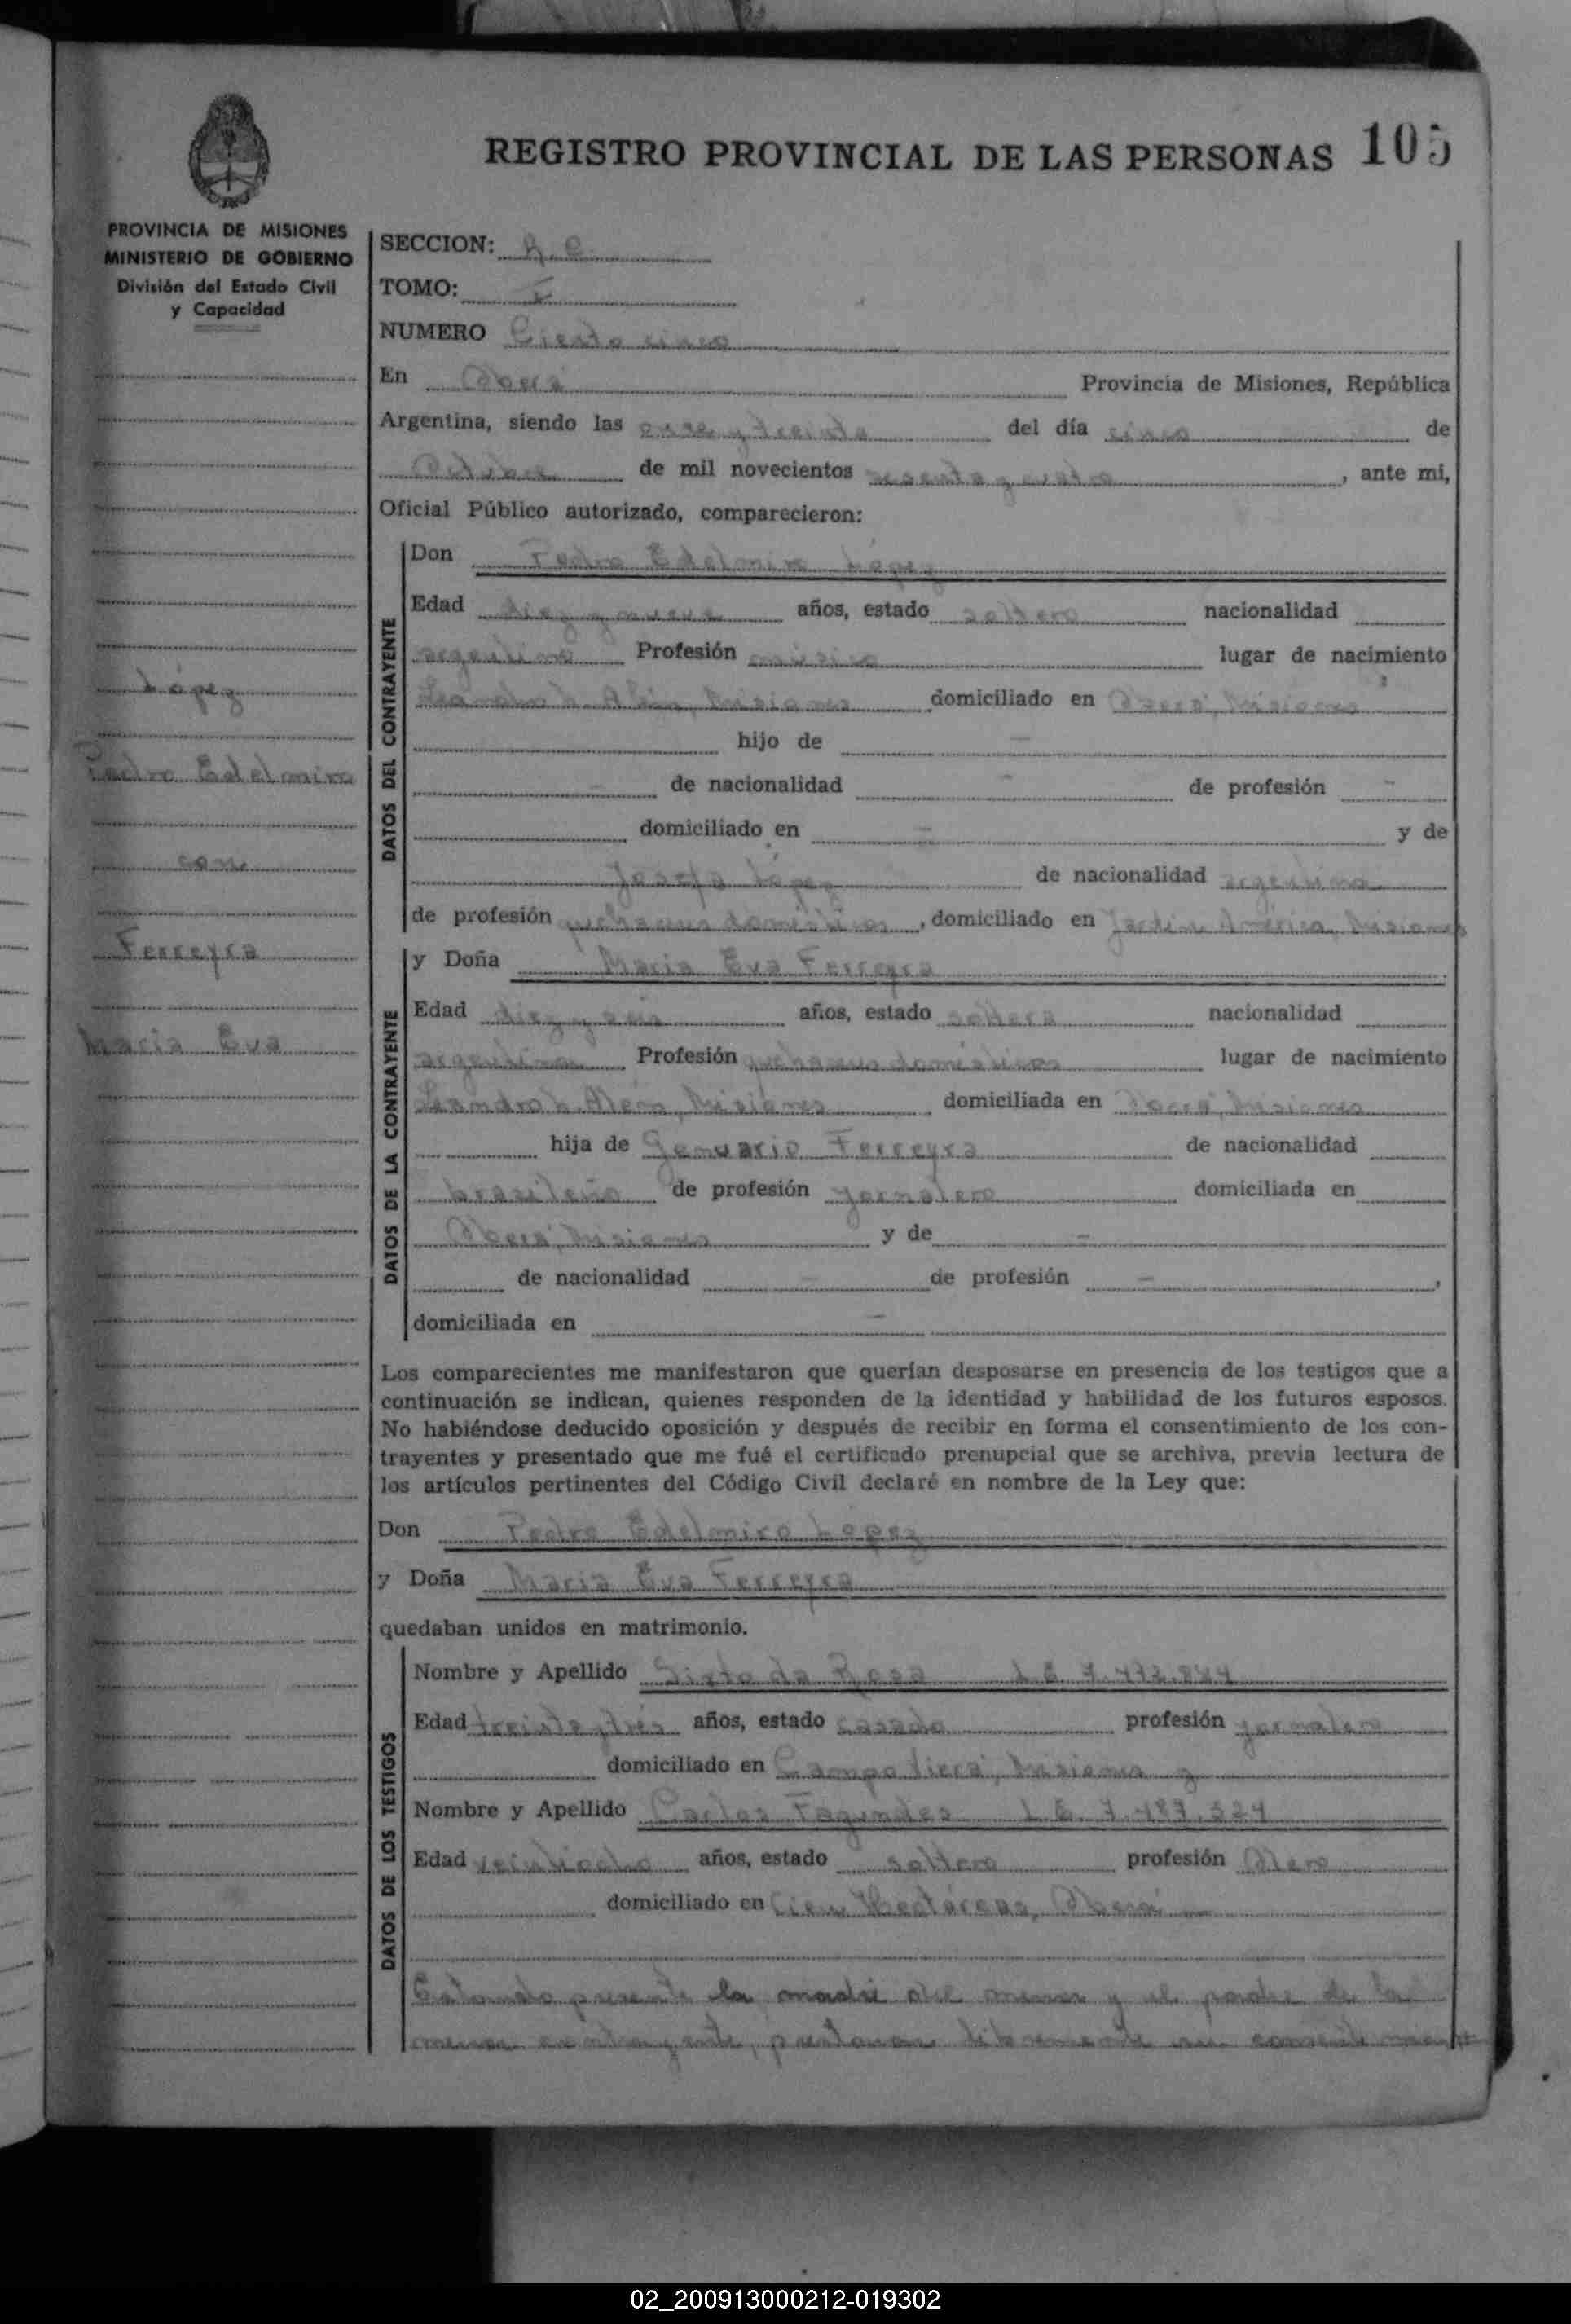 REGISTRO PROVINCIAL DE LAS PERSONAS 105
PROVINCIA DE MISIONES
MINISTERIO DE GOBIERNO
División del Estado Civil
y Capacidad
López
Pedro Edelmiro
con
Ferreyra
Maria Eva
SECCION:
TOMO: I
NUMERO Ciento cinco
En Oberá Provincia de Misiones, República
Argentina, siendo las once y treinta del día cinco de
Octubre de mil novecientos sesenta y cuatro, ante mi,
Oficial Público autorizado, comparecieron:
DATOS DEL CONTRAYENTE
Don Pedro Edelmiro López
Edad diez y nueve años, estado soltero nacionalidad
argentino Profesión músico lugar de nacimiento
Leandro N. Além, Misiones domiciliado en Oberá, Misiones
hijo de -
- de nacionalidad - de profesión -
domiciliado en - y de
Josefa López de nacionalidad argentina
de profesión quehaceres domésticos, domiciliado en Jardín América, Misiones
DATOS DE LA CONTRAYENTE
y Doña Maria Eva Ferreyra
Edad diez y seis años, estado soltera nacionalidad
argentina Profesión quehaceres domésticos lugar de nacimiento
Leandro N. Além, Misiones domiciliada en Oberá, Misiones
hija de Genuario Ferreyra de nacionalidad
brasileño de profesión jornalero domiciliada en
Oberá, Misiones y de -
de nacionalidad - de profesión -,
domiciliada en -
Los comparecientes me manifestaron que querían desposarse en presencia de los testigos que a
continuación se indican, quienes responden de la identidad y habilidad de los futuros esposos.
No habiéndose deducido oposición y después de recibir en forma el consentimiento de los con-
trayentes y presentado que me fué el certificado prenupcial que se archiva, previa lectura de
los artículos pertinentes del Código Civil declaré en nombre de la Ley que:
Don Pedro Edelmiro Lopez
y Doña Maria Eva Ferreyra
quedaban unidos en matrimonio.
DATOS DE LOS TESTIGOS
Nombre y Apellido Sixto da Rosa L E
Edad treinta y tres años, estado casado profesión jornalero
domiciliado en Campo Viera, Misiones y
Nombre y Apellido Carlos Fagundes L E 7.487.324
Edad veintiocho años, estado soltero profesión
domiciliado en Cien Hectáreas, Oberá
Estando presente la madre del menor y el padre de la
menor contrayente, prestaron libremente su consentimient
02_200913000212-019302